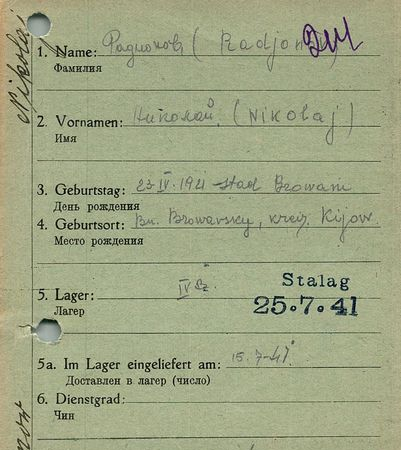 1. Name: Радионов (Radjonow)
Фамилия
Nikolaj
2. Vornamen: Николай. (Nikolaj)
Имя
3. Geburtstag: 23 IV. 1921 stad Browarii
День рождения
4. Geburtsort: Browarsky, kreiz. Kijow
Место рождения
5. Lager: IV
Лагер
Stalag
25.7.41
5a. Im Lager eingeliefert am: 15.7-41
Доставлен в лагер (число)
6. Dienstgrad:
Чин